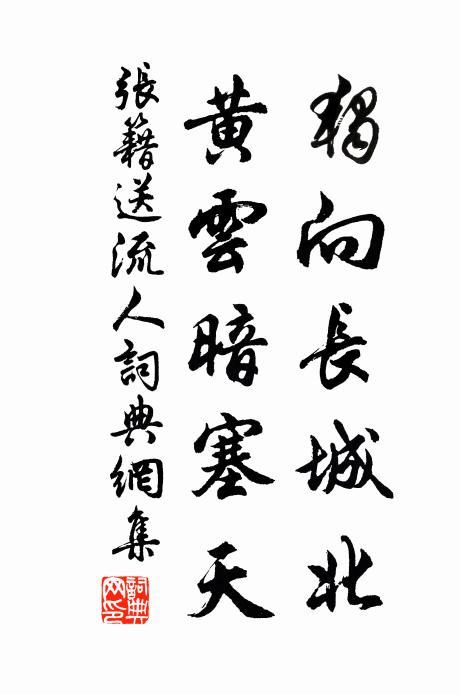 獨向長城北
黃雲暗塞天
張籍送流人詞典網集
詞典網印